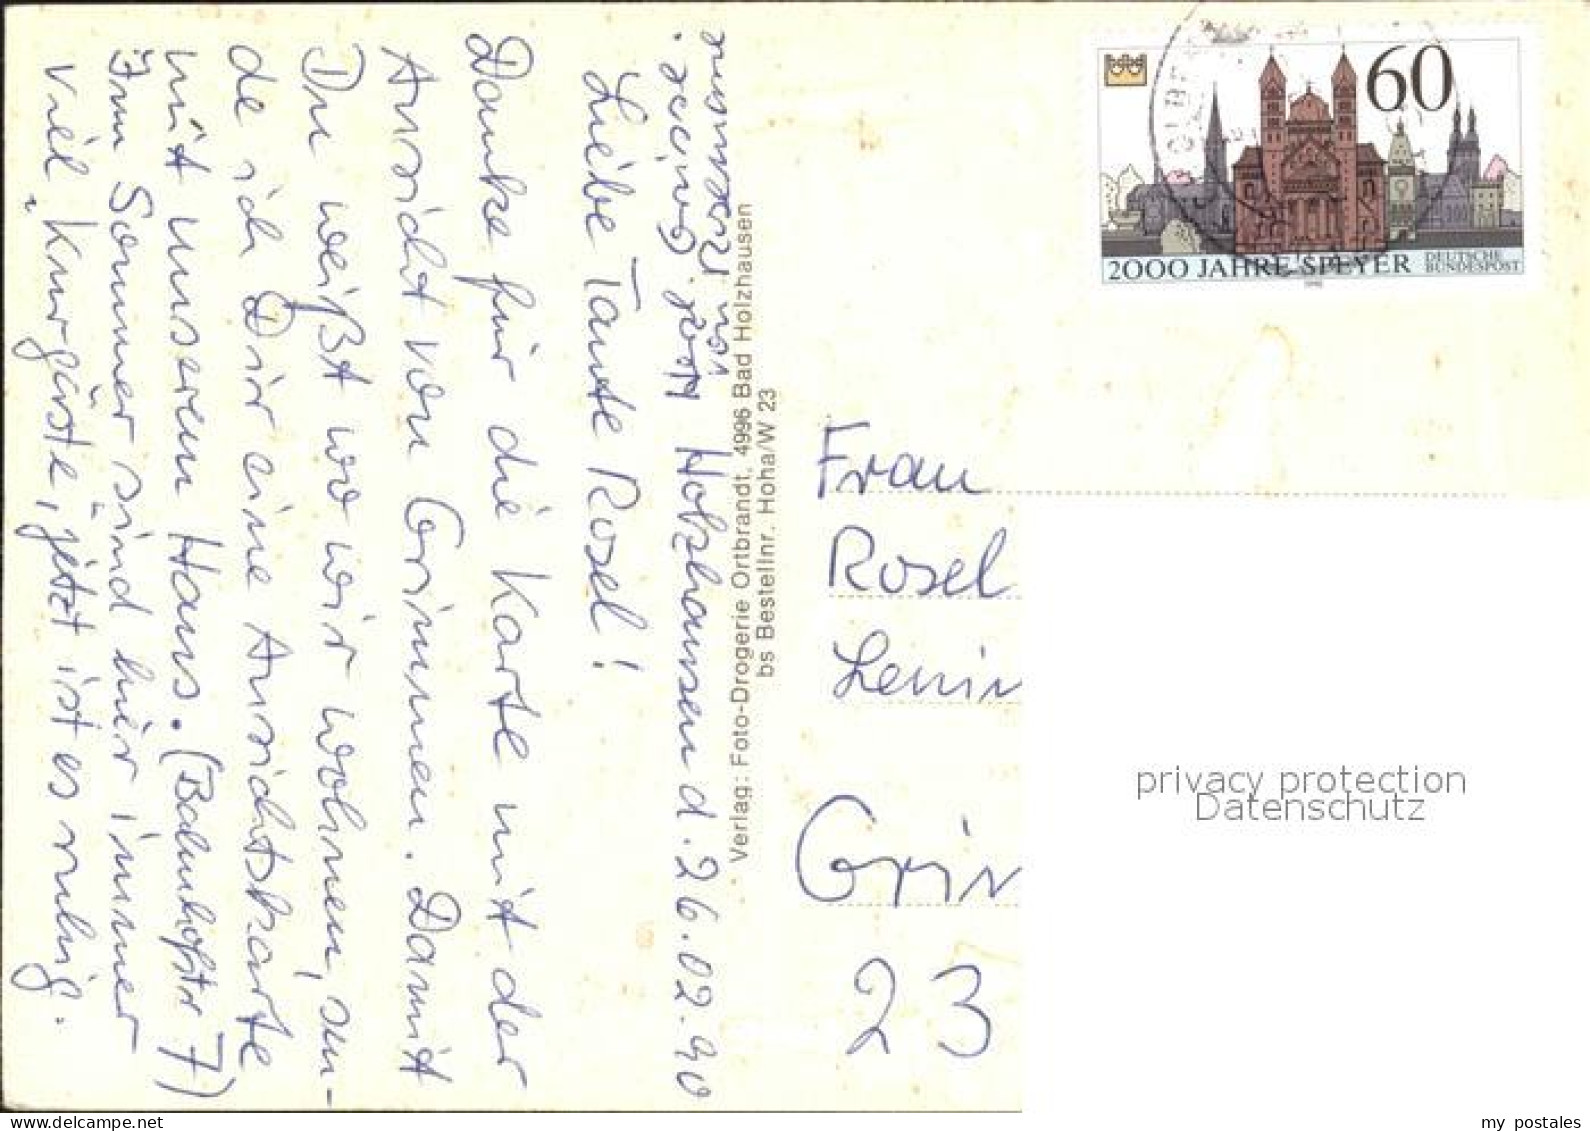 Holzhausen d. 26.02.90
Liebe Tante Rosel!
Danke für die Karte mit der
Ansicht von Grimmen. Damit
Du weißt wo wir wohnen, sen-
de ich Dir eine Ansichtskarte
mit unserem Haus. (Bahnhofstr 7)
Im Sommer sind hier immer
viel „Kurgäste, jetzt ist es ruhig.
Verlag: Foto-Drogerie Ortbrandt, 4996 Bad Holzhausen
bs Bestellnr. Hoha/W 23
60
2000 JAHRE SPEYER
DEUTSCHE
BUNDESPOST
1990
Frau
Rosel
Grim
23
privacy protection
Datenschutz
my postales